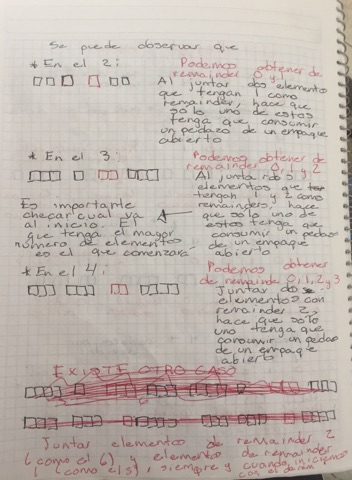 Se puede observar que
* En el 2:
Podemos obtener de
remainder 0 y 1
Al juntar dos elementos
que tengan 1 como
remainder, hace que
solo uno de estos
tenga que consumir
un pedazo de un empaque
abierto
* En el 3:
Podemos obtener de
remainder 0, 1 y 2
Al juntar dos
elementos que
tengan 1 y 2 como
remainders, hace
que solo uno de
estos tenga que
consumir un pedazo
de un empaque
abierto
Es importante
checar cual va
al inicio. El
que tenga el mayor
número de elementos
es el que comenzará
* En el 4:
Podemos obtener
de remainder 0, 1, 2 y 3
Juntar dos
elementos con
remainder 2,
hace que solo
uno tenga que
consumir un pedazo
de un empaque
abierto
EXISTE OTRO CASO
Juntar elementos de remainder 2
(como el 6) y elementos de remainder
(como el 3), siempre y cuando iniciemos
con el de